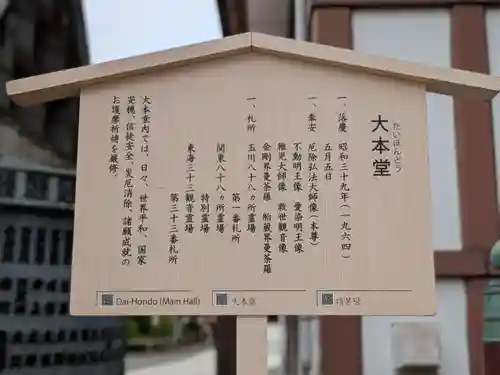 大本堂
だいほんどう
一、落慶　昭和三十九年（一九六四）
五月五日
一、奉安　厄除弘法大師像（本尊）
不動明王像　愛染明王像
稚児大師像　救世観音像
金剛界曼荼羅　胎蔵界曼荼羅
一、札所　玉川八十八ヵ所霊場
第一番札所
関東八十八ヵ所霊場
特別霊場
東海三十三観音霊場
第三十三番札所
大本堂内では、日々、世界平和、国家
安穏、信徒安全、災厄消除、諸願成就の
お護摩祈祷を厳修。
Dai-Hondo (Main Hall)
大本堂
대본당